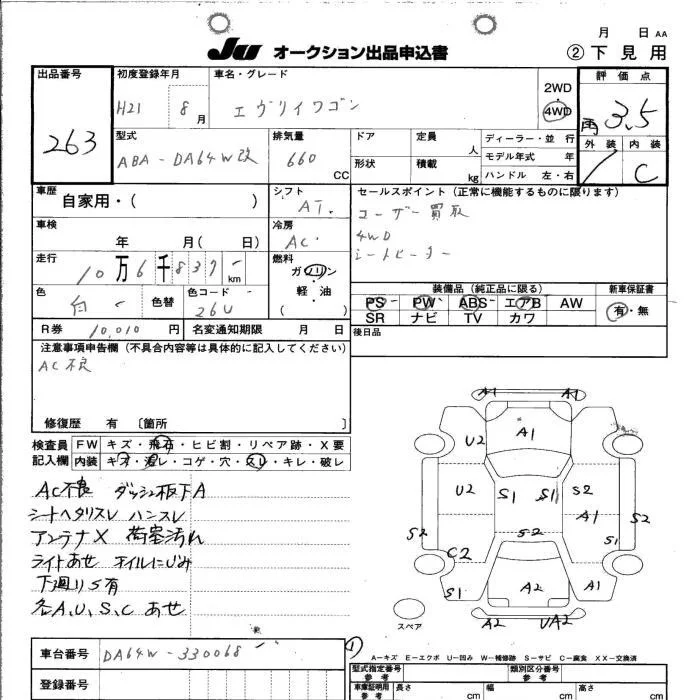 月 日 AA
JU オークション出品申込書 ② 下見用
出品番号 263
初度登録年月 H21 8月
車名・グレード エヴリイワゴン
2WD
4WD
評価点 3.5
外装 内装 C
型式 ABA-DA64W改
排気量 660 CC
ドア 定員 人
形状 積載 kg
ディーラー・並 行
モデル年式 年
ハンドル 左・右
車歴 自家用・( )
シフト AT.
セールスポイント (正常に機能するものに限ります)
ユーザー買取
4WD
シートヒーター
車検 年 月( 日)
冷房 AC.
走行 10万6千837 km
燃料 ガソリン・軽・油 ( )
装備品 (純正品に限る)
PS PW ABS エアB AW
SR ナビ TV カワ
新車保証書 有・無
色 白
色替
色コード 26U
R券 10,010 円 名変通知期限 月 日
後日品
注意事項申告欄 (不具合内容等は具体的に記入してください)
AC不良
修復歴 有 〔箇所 〕
検査員記入欄
FW キズ・飛石・ヒビ割・リペア跡・X要
内装 キズ・汚レ・コゲ・穴・スレ・キレ・破レ
AC不良 ダッシュ板下A
シートヘタリスレ ハンスレ
アンテナX 荷室汚れ
ライトあせ オイルにじみ
下廻りS有
各A、U、S、C あせ
A1 A1
U2 A1
U2 S1 S1 S2
A1
S2 S2 S2
C2 S1
S1 A2 A1
A2 UA2
スペア
A-キズ E-エクボ U-凹み W-補修跡 S-サビ C-腐食 XX-交換済
車台番号 DA64W-330068
登録番号
型式指定番号 参考
類別区分番号 参考
車庫証明用 参考 長さ cm 幅 cm 高さ cm